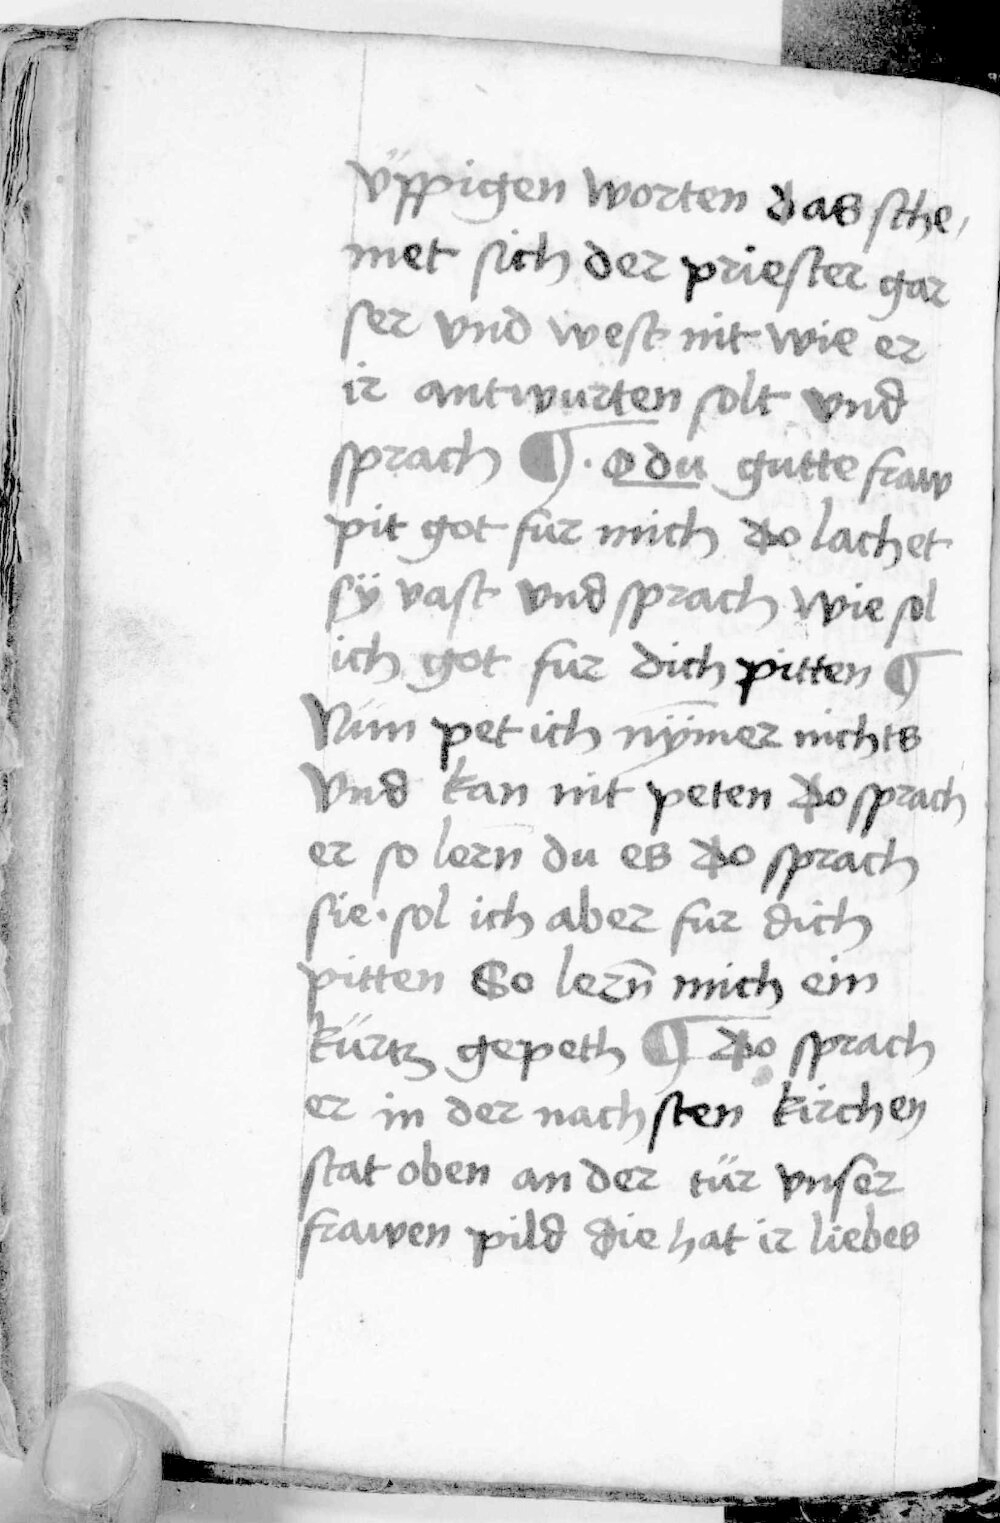 vppigen worten das sche,
met sich der priester gar
ser vnd west nit wie er
ir antwurten solt vnd
sprach ¶ · O du gutte fraw
pit got fur mich do lachet
sÿ vast vnd sprach wie sol
ich got fur dich pitten ¶
Nun pet ich nÿmer nichts
vnd kan nit peten do sprach
er so lern̄ du es do sprach
sie · sol ich aber fur dich
pitten So lern̄ mich ein
kürtz gepeth ¶ do sprach
er in der nachsten kirchen
stat oben an der tür vnser
frawen pild die hat ir liebes